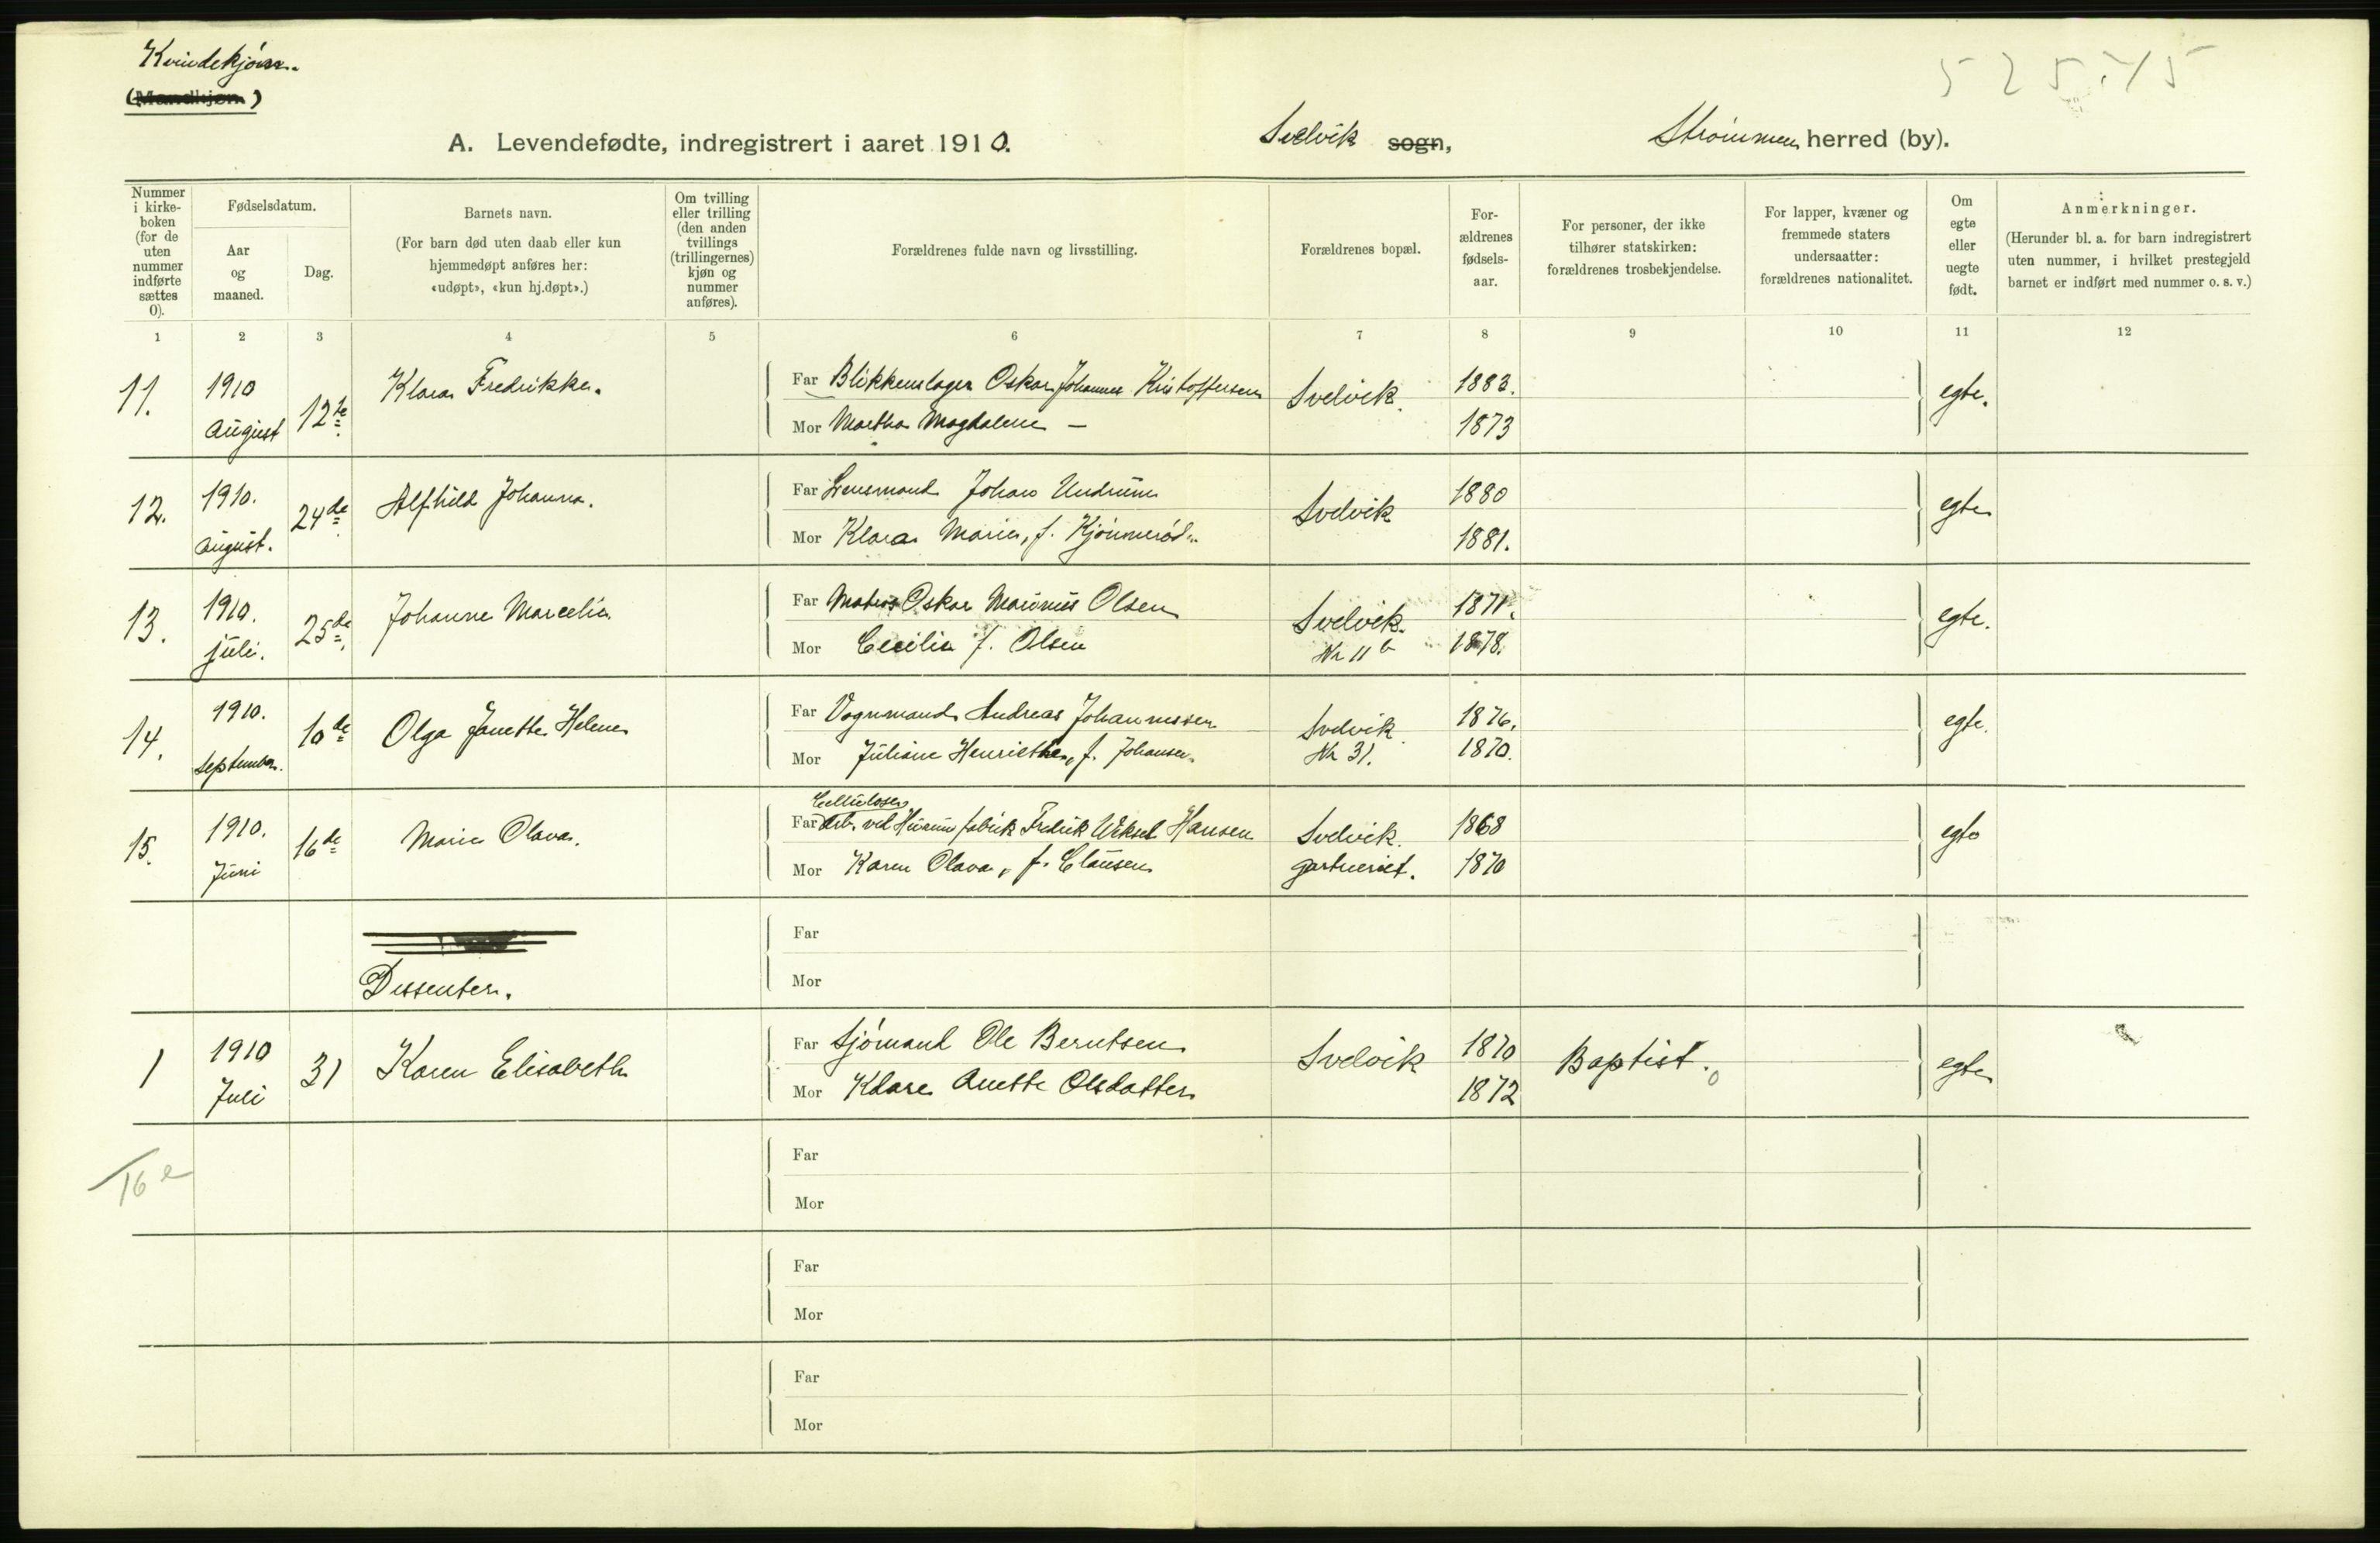 Kvindekjøn.
(Mandkjøn.)
A. Levendefødte, indregistrert i aaret 1910. Svelvik sogn, Strømmen herred (by).
Nummer i kirkeboken (for de uten nummer indførte sættes 0).
Fødselsdatum.
Aar og maaned.
Dag.
Barnets navn.
(For barn død uten daab eller kun hjemmedøpt anføres her: «udøpt», «kun hj.døpt».)
Om tvilling eller trilling (den anden tvillings (trillingernes) kjøn og nummer anføres).
Forældrenes fulde navn og livsstilling.
Forældrenes bopæl.
Forældrenes fødselsaar.
For personer, der ikke tilhører statskirken: forældrenes trosbekjendelse.
For lapper, kvæner og fremmede staters undersaatter: forældrenes nationalitet.
Om egte eller uegte født.
Anmerkninger.
(Herunder bl. a. for barn indregistrert uten nummer, i hvilket prestegjeld barnet er indført med nummer o. s. v.)
1 2 3 4 5 6 7 8 9 10 11 12
11. 1910 August 12te Klara Fredrikke. Far Blikkenslager Oskar Johannes Kristoffersen Svelvik. 1883. egte.
Mor Martha Magdalene — 1873
12. 1910. August. 24de Alfhild Johanna. Far Lensmand Johan Undrum Svelvik 1880 egte
Mor Klara Marie, f. Kjønnerød. 1881.
13. 1910. juli. 25de. Johanne Marcelia Far Matros Oskar Marinius Olsen Svelvik. 1871. egte.
Mor Cecilia f. Olsen Nr 11b 1878.
14. 1910. September. 10de Olga Janette Helene Far Vognmand Andreas Johannessen Svelvik. 1876. egte.
Mor Juliane Henriethe, f. Johansen. Nr 31. 1870.
15. 1910. Juni 16de Marie Olava. Far Cellulose Arb. ved fabrik Fredrik Hansen Svelvik. 1868 egte
Mor Karen Olava, f. Clausen gartneriet. 1870
Far
Dissenter.
Mor
1 1910 Juli 31 Karen Elisabeth Far Sjømand Ole Berntsen Svelvik 1870 Baptist. egte
Mor Klara Anette Olsdatter 1872
Far
16
Mor
Far
Mor
Far
Mor